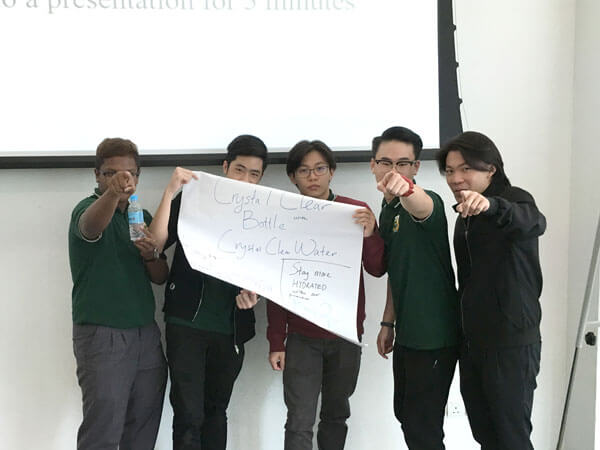 a presentation for 5 minutes
Crystal Clear
Bottle with
Crystal Clear Water
Stay more
HYDRATED
with our